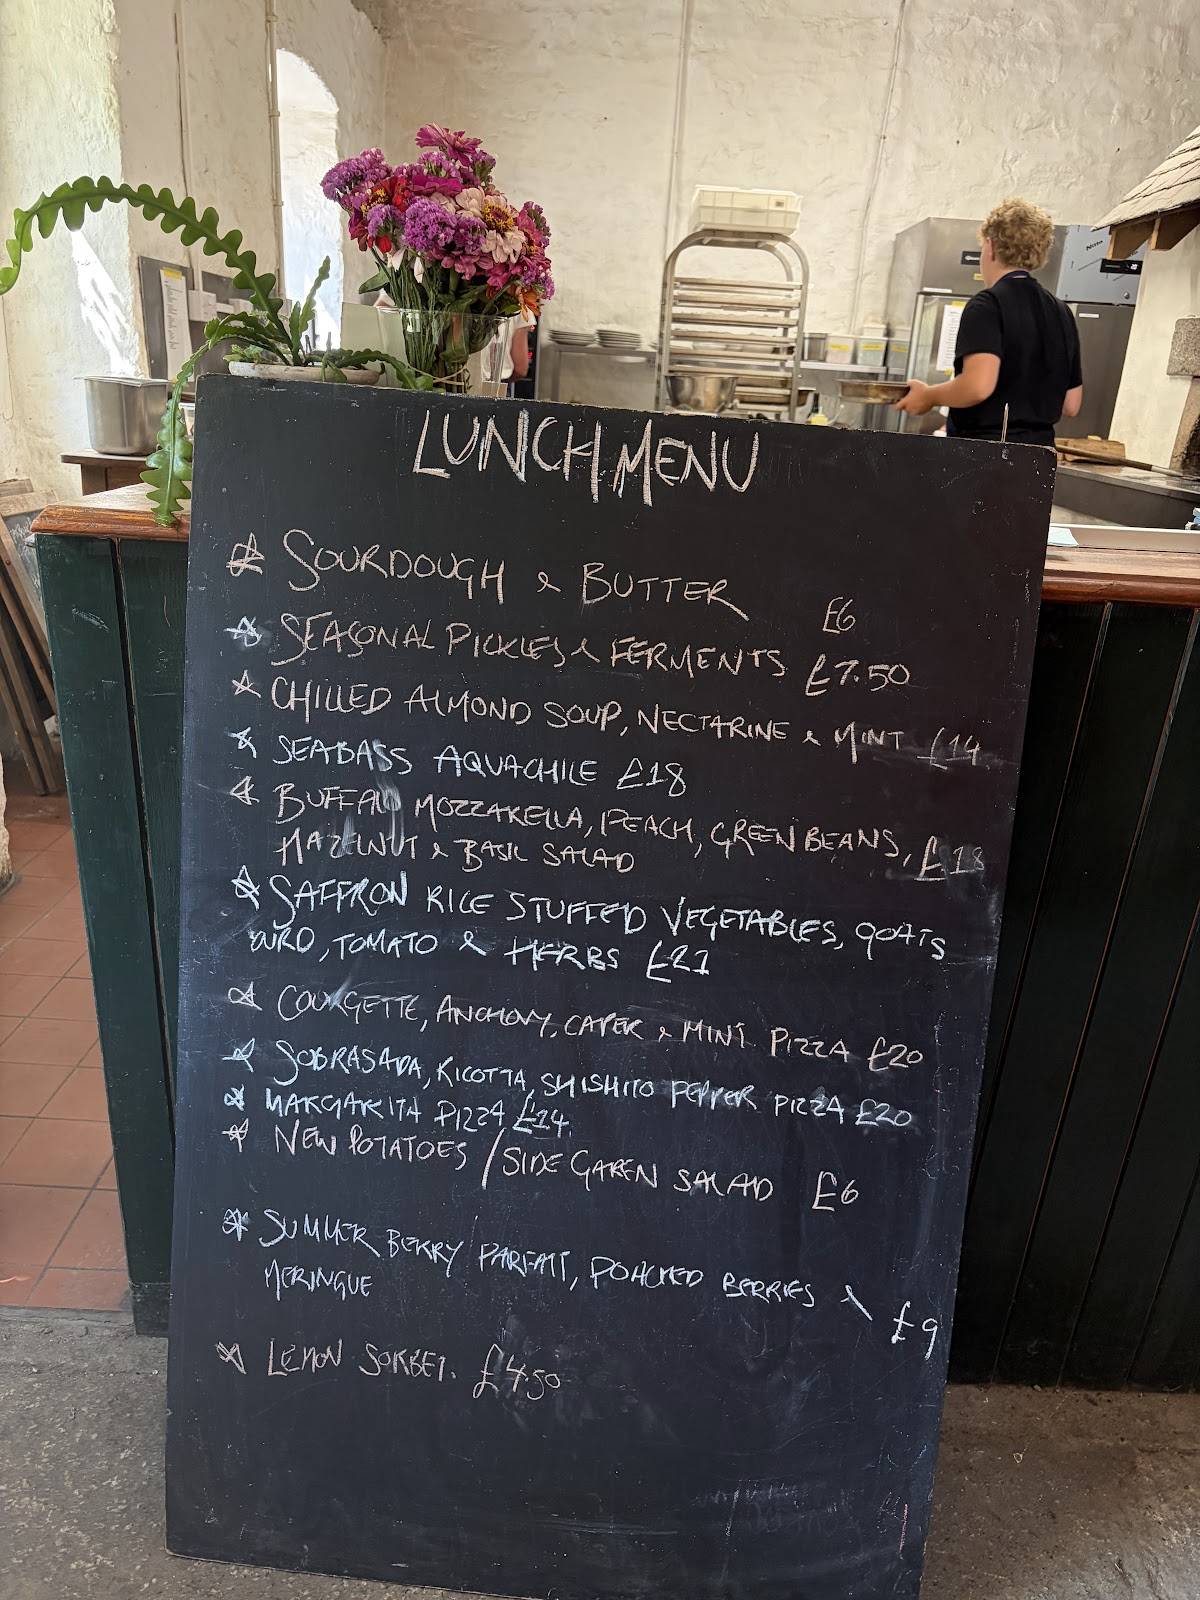 LUNCH MENU
SOURDOUGH & BUTTER £6
SEASONAL PICKLES & FERMENTS £7.50
CHILLED ALMOND SOUP, NECTARINE & MINT £14
SEABASS AQUACHILE £18
BUFFALO MOZZARELLA, PEACH, GREEN BEANS,
HAZELNUT & BASIL SALAD £18
SAFFRON RICE STUFFED VEGETABLES, GOATS
CURD, TOMATO & HERBS £21
COURGETTE, ANCHOVY, CAPER & MINT PIZZA £20
SOBRASADA, RICOTTA, SHISHITO PEPPER PIZZA £20
MARGARITA PIZZA £14
NEW POTATOES / SIDE GAREN SALAD £6
SUMMER BERRY PARFAIT, POACHED BERRIES &
MERINGUE £9
LEMON SORBET. £4.50